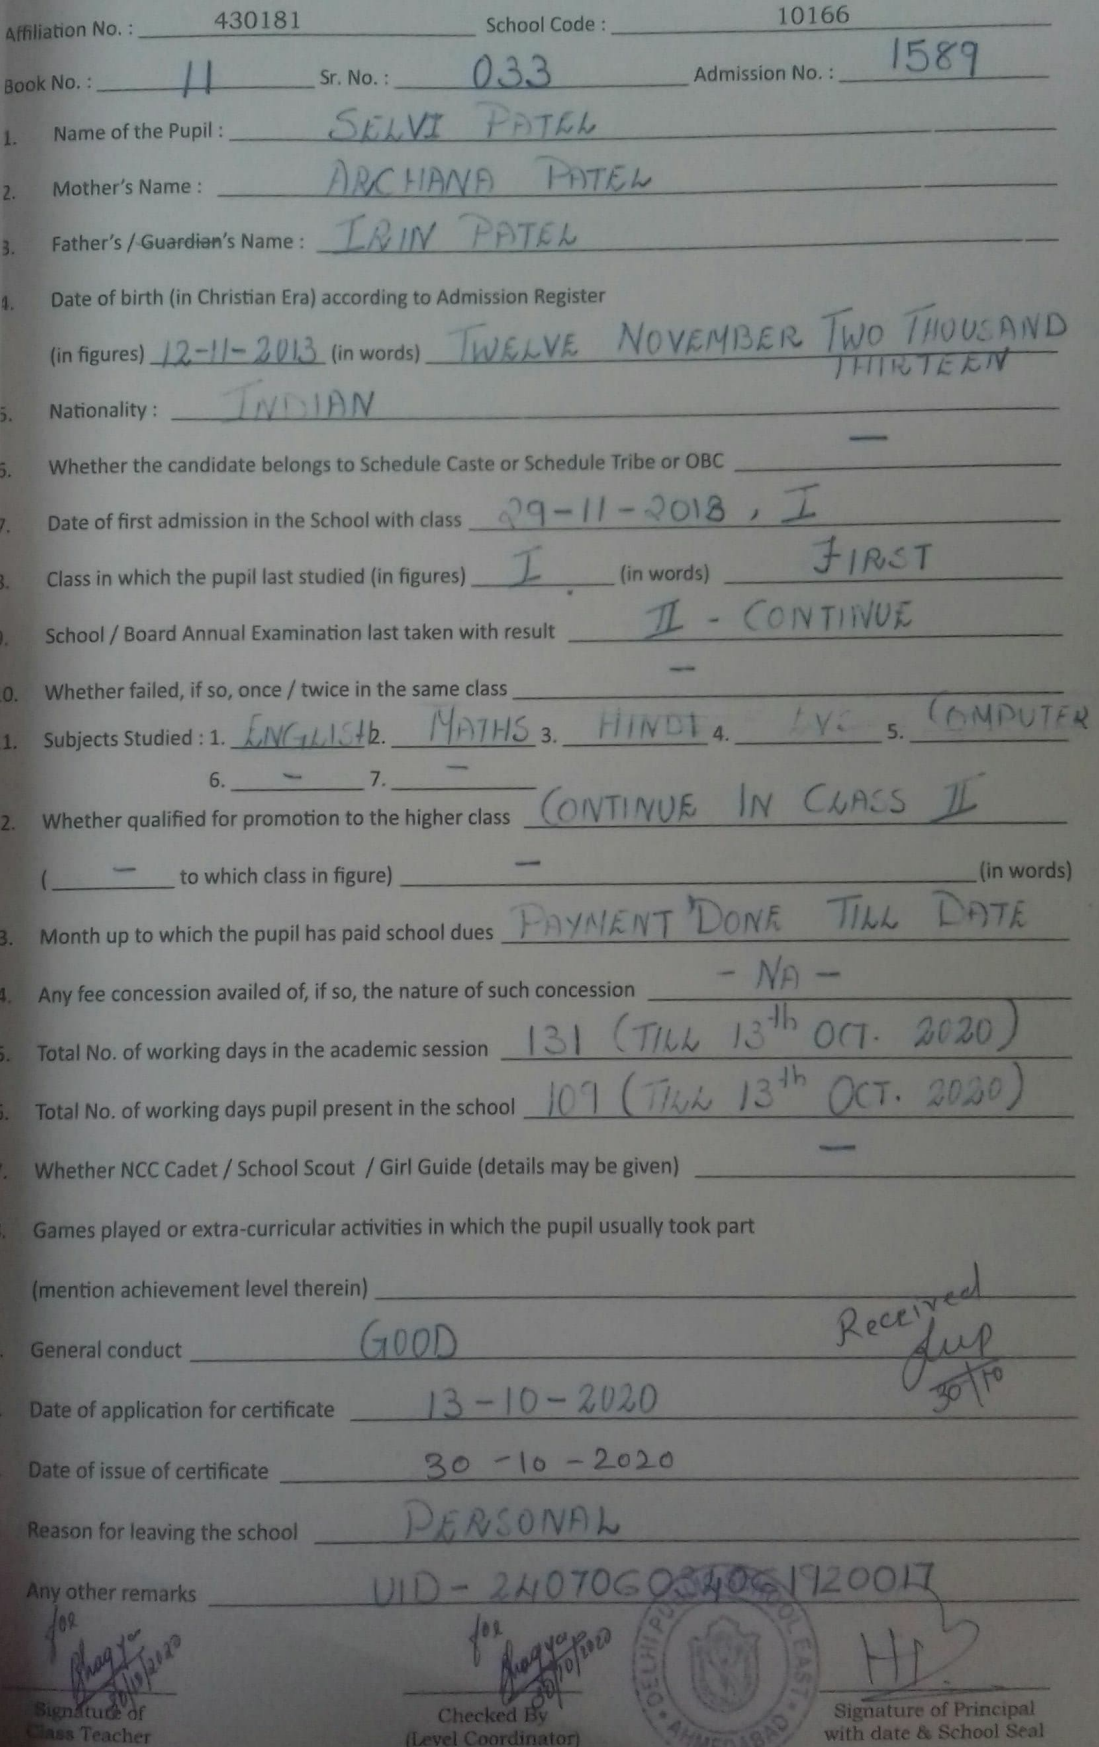 Affiliation No. : 430181 School Code : 10166
Book No. : 11 Sr. No. : 033 Admission No. : 1589
1. Name of the Pupil : SELVI PATEL
2. Mother's Name : ARCHANA PATEL
3. Father's / Guardian's Name : IRIN PATEL
4. Date of birth (in Christian Era) according to Admission Register
(in figures) 12-11-2013 (in words) TWELVE NOVEMBER TWO THOUSAND
THIRTEEN
5. Nationality : INDIAN
6. Whether the candidate belongs to Schedule Caste or Schedule Tribe or OBC —
7. Date of first admission in the School with class 29-11-2018 , I
8. Class in which the pupil last studied (in figures) I (in words) FIRST
9. School / Board Annual Examination last taken with result II - CONTINUE
0. Whether failed, if so, once / twice in the same class —
1. Subjects Studied : 1. ENGLISH 2. MATHS 3. HINDI 4. 5. COMPUTER
6. – 7. –
2. Whether qualified for promotion to the higher class CONTINUE IN CLASS II
( — to which class in figure) — (in words)
3. Month up to which the pupil has paid school dues PAYMENT DONE TILL DATE
4. Any fee concession availed of, if so, the nature of such concession - NA -
5. Total No. of working days in the academic session 131 (TILL 13th OCT. 2020)
6. Total No. of working days pupil present in the school 109 (TILL 13th OCT. 2020)
Whether NCC Cadet / School Scout / Girl Guide (details may be given) —
Games played or extra-curricular activities in which the pupil usually took part
(mention achievement level therein)
Received
30/10
General conduct GOOD
Date of application for certificate 13-10-2020
Date of issue of certificate 30-10-2020
Reason for leaving the school PERSONAL
Any other remarks UID - 240706034061920017
for for
30/10/2020 30/10/2020
DELHI PUBLIC SCHOOL EAST • AHMEDABAD
Signature of Class Teacher
Checked By (Level Coordinator)
Signature of Principal with date & School Seal